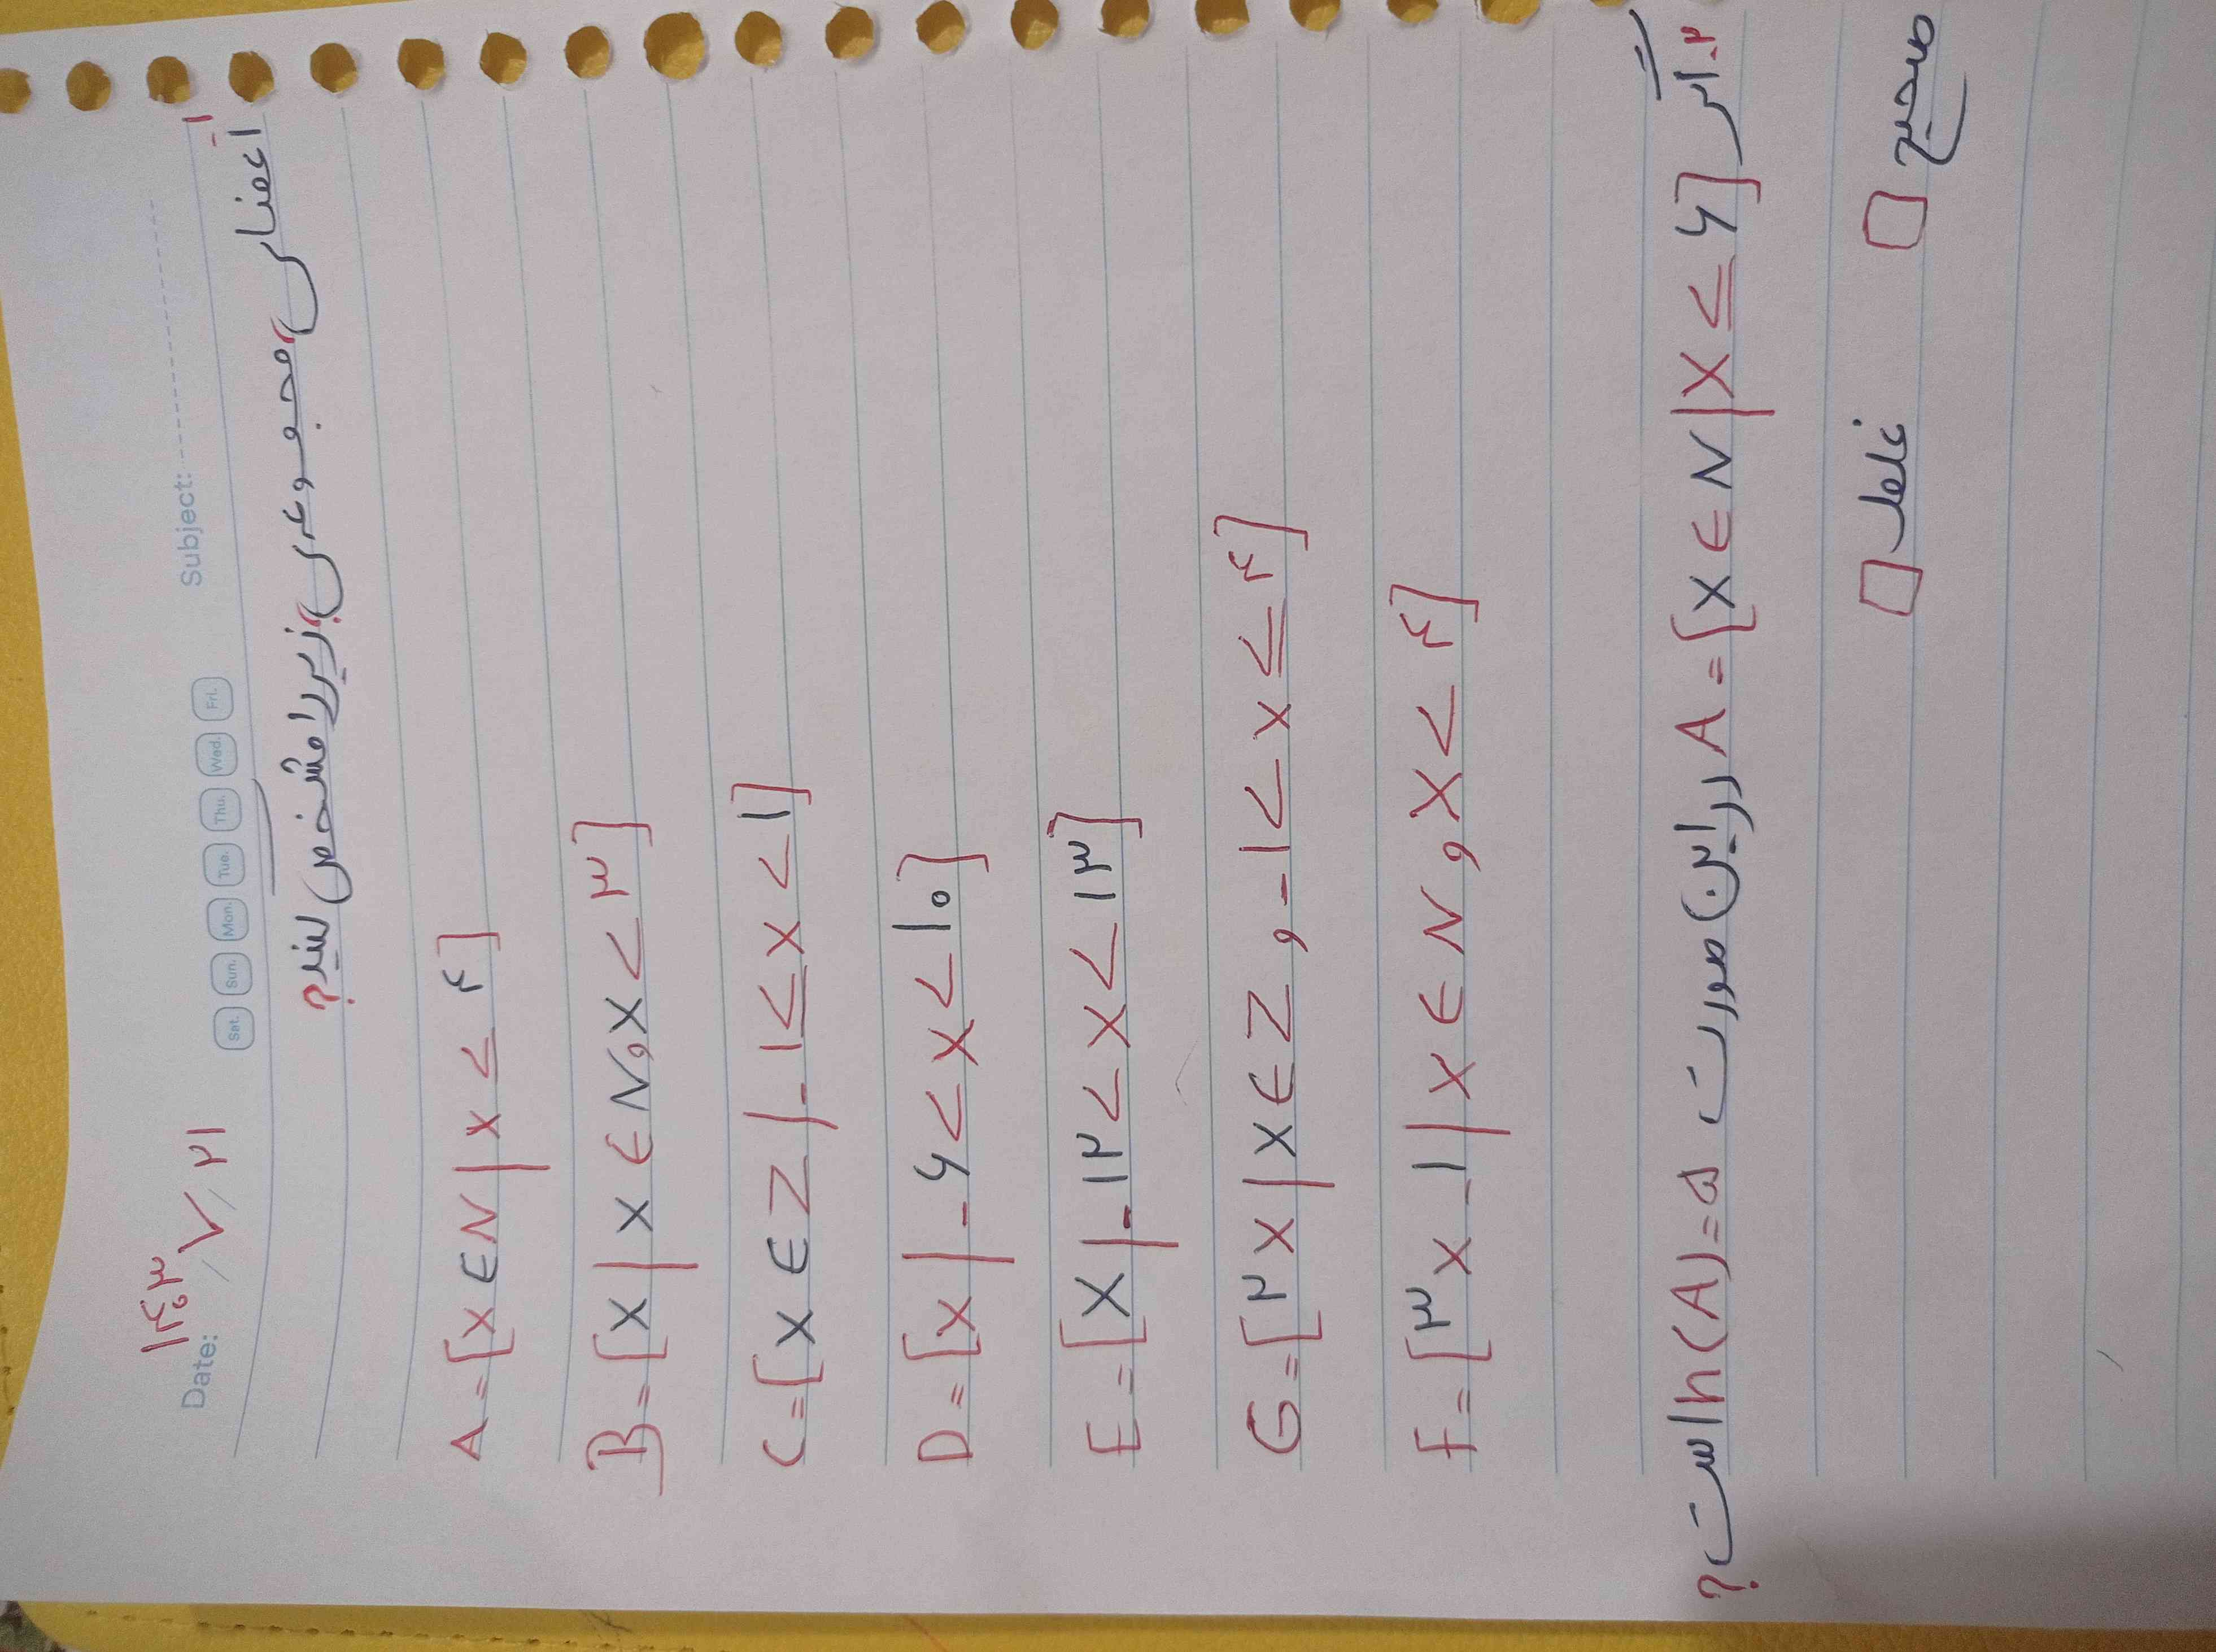 Date: ۱۴۰۳/۷/۲۱ Subject:
Sat. Sun. Mon. Tue. Thu. Wed. Fri.
۱- اعضای مجموعه‌ی زیر را مشخص کنید؟
A=[X∈N|X≤۴]
B=[X|X∈N,X<۳]
C=[X∈Z|-۱≤X<۱]
D=[X|-۶<X<۱۰]
E=[X|-۱۲<X<۱۳]
G=[۲X|X∈Z,-۱<X≤۴]
F=[۳X-۱|X∈N,X<۴]
۲- اگر A=[X∈N|X≤۶] در این صورت n(A)=۵ است؟
صحیح □ غلط □